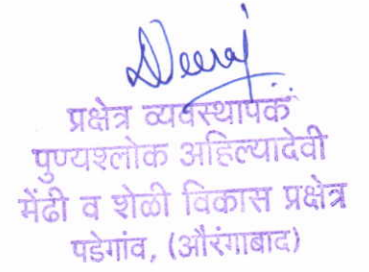 Deeraj
प्रक्षेत्र व्यवस्थापक
पुण्यश्लोक अहिल्यादेवी
मेंढी व शेळी विकास प्रक्षेत्र
पडेगांव, (औरंगाबाद)